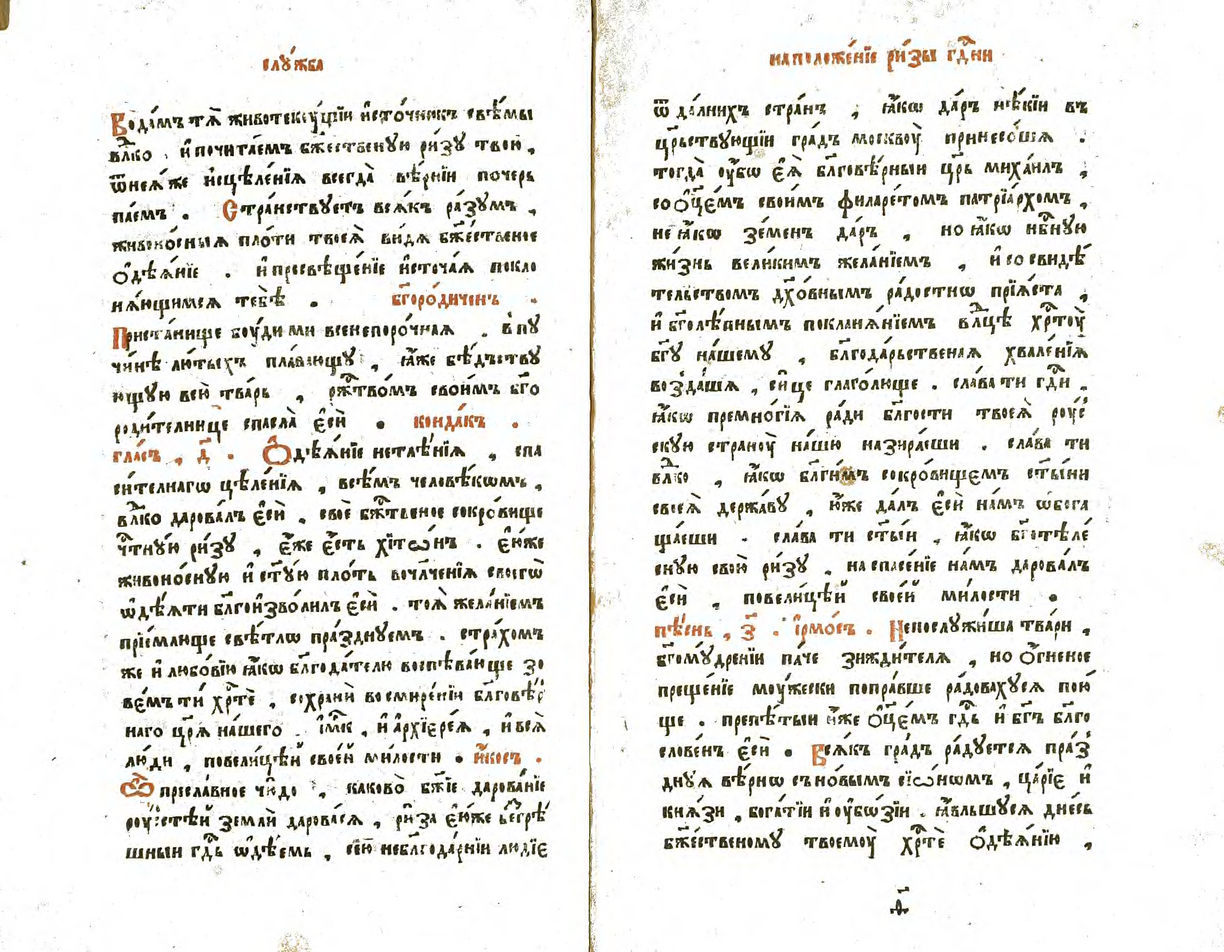 слꙋ́жба
Водамъ тѧ̀ живoтекꙋ́щїи и҆сто́чникъ свѣ́мы
влⷣко . и҆ почита́емъ бж҃ественꙋю ри́зꙋ твою̀ ,
ѿнеѧ́же и҆сцѣле́нїѧ всегда̀ вѣ́рнїи почерь
па́емъ . Стра́нствꙋетъ всѧ́къ ра́зꙋмъ ,
живоно́сныѧ пло́ти твоеѧ̀ ви́дѧ бж҃е́ственое
ѻ҆дѣѧ́нїе . и҆ просвѣще́нїе и҆сточа́ѧ покло
нѧ́ющимсѧ тебѣ̀ . бг҃оро́диченъ .
Приста́нище боꙋ́ди ми всенепоро́чнаѧ . в пꙋ
чи́нѣ лю́тыхъ пла́вающꙋ , ꙗ҆́же бѣ́дъствꙋ
ющꙋю всю̀ тва́рь , рⷤтво́мъ свои́мъ бг҃о
роди́телнице спасла̀ є҆сѝ . конда́къ .
гла́съ , д҃ . Ѻ҆дѣѧ́нїе нетлѣ́нїѧ , спа
си́телнагѡ цѣле́нїѧ , всѣ́мъ человѣ́кѡмъ ,
влⷣко дарова́лъ є҆сѝ , своѐ бж҃твеное сокро́вище
чⷭ҇тнꙋ́ю ри́зꙋ , є҆́же є҆́сть хїтѡ́нъ . є҆ю́же
живоно́снꙋю и҆ ст҃ꙋ́ю пло́ть вочлч҃енїѧ своегѡ̀
ѡ҆дѣ́ѧти бл҃гоизво́лилъ є҆сѝ . тоѧ̀ жела́нїемъ
прїе́млюще свѣ́тлѡ пра́зднꙋемъ . стра́хомъ
же и҆ любо́вїю ꙗ҆́кѡ бл҃года́телю воспѣва́юще зо
ве́мъ ти хрⷭ҇тѐ , сохранѝ во смире́нїи бл҃говѣ́р
наго цр҃ѧ̀ на́шего . и҆мⷬ҇къ , и҆ а҆рхїере́ѧ , и҆ всѧ̀
лю́ди , повели́цѣй свое́й ми́лости . и҆́косъ .
Ѽ пресла́вное чю́до , каково̀ бж҃їе дарова́нїе
роꙋ́стѣй землѝ дарова́сѧ , ри́за є҆ю́же безгрѣ́
шныи гдⷭ҇ь ѡ҆дѣ́емь , сею̀ неблагода́рнїи лю́дїе
наположе́нїе ри́зы гдⷭ҇ни
ѿ да́лнихъ стра́нъ , ꙗ҆́кѡ да́ръ нѣ́кїи въ
црⷭ҇ьствꙋющїи гра́дъ москвоꙋ̀ принесо́шѧ .
тогда̀ оу҆́бѡ є҆ѧ̀ бл҃говѣ́рныи цр҃ь миха́илъ ,
со ѻ҆ц҃е́мъ свои́мъ филаре́томъ патрїа́рхомъ ,
не ꙗ҆́кѡ зе́менъ да́ръ , но ꙗ҆́кѡ нбⷭ҇нꙋю
жи́знь вели́кимъ жела́нїемъ , и҆ со свидѣ́
тельствомъ дх҃о́внымъ ра́достнѡ прїѧ́ста ,
и҆ бг҃олѣ́пнымъ поклонѧ́нїемъ влⷣцѣ хрⷭ҇тоꙋ̀
бг҃ꙋ на́шемꙋ , бл҃года́рьственаѧ хвале́нїѧ
возда́шѧ , си́це глаго́люще . сла́ва ти гдⷭ҇и ,
ꙗ҆́кѡ премно́гїѧ ра́ди бл҃гости твоеѧ̀ роуⷭ
скꙋю странꙋ̀ на́шю назира́еши . сла́ва ти
влⷣко , ꙗ҆́кѡ бл҃ги́мъ сокро́вищемъ ст҃ы́ни
своеѧ̀ держа́вꙋ , ю҆́же да́лъ є҆сѝ на́мъ ѡ҆бога
ща́еши . сла́ва ти ст҃ы́и , ꙗ҆́кѡ бг҃отѣле́
снꙋю свою̀ ри́зꙋ , на спасе́нїе на́мъ дарова́лъ
є҆сѝ , повели́цѣй свое́й ми́лости .
пѣ́снь , з҃ . і҆рмо́съ . Непослꙋжи́ша тва́ри ,
бг҃омꙋ́дренїи па́че зижди́телѧ , но ѻ҆́гненое
преще́нїе моꙋ́жески попра́вше ра́довахꙋсѧ пою́
ще . препѣ́тыи и҆́же ѻ҆ц҃е́мъ гдⷭ҇ь и҆ бг҃ъ бл҃го
слове́нъ є҆сѝ . Всѧ́къ гра́дъ ра́дꙋетсѧ пра́з
днꙋѧ вѣ́рнѡ съ но́вымъ сїѡ́номъ , ца́рїе и҆
кнѧ́зи , бога́тїи и҆ оу҆бѡ́зїи . ꙗ҆́вльшꙋсѧ дне́сь
бж҃е́ственомꙋ твоемоꙋ̀ хрⷭ҇тѐ ѻ҆дѣѧ́нїю ,
д҃